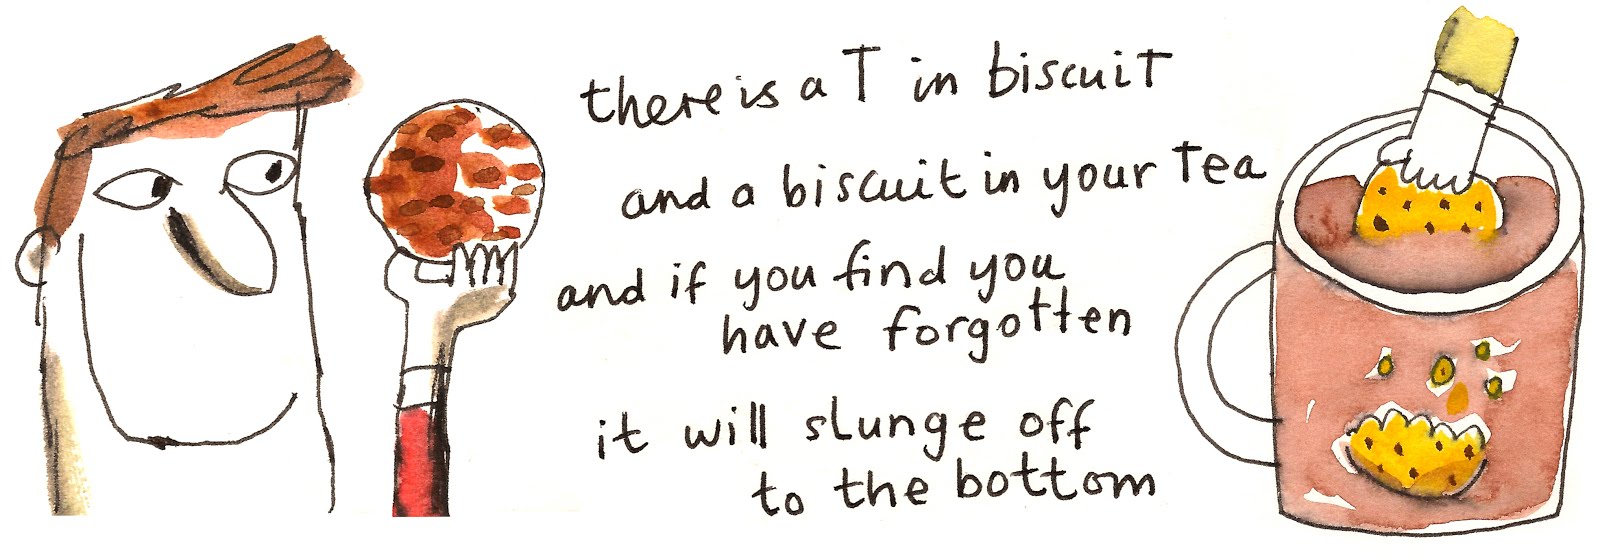 there is a T in biscuit
and a biscuit in your Tea
and if you find you
have forgotten
it will slunge off
to the bottom